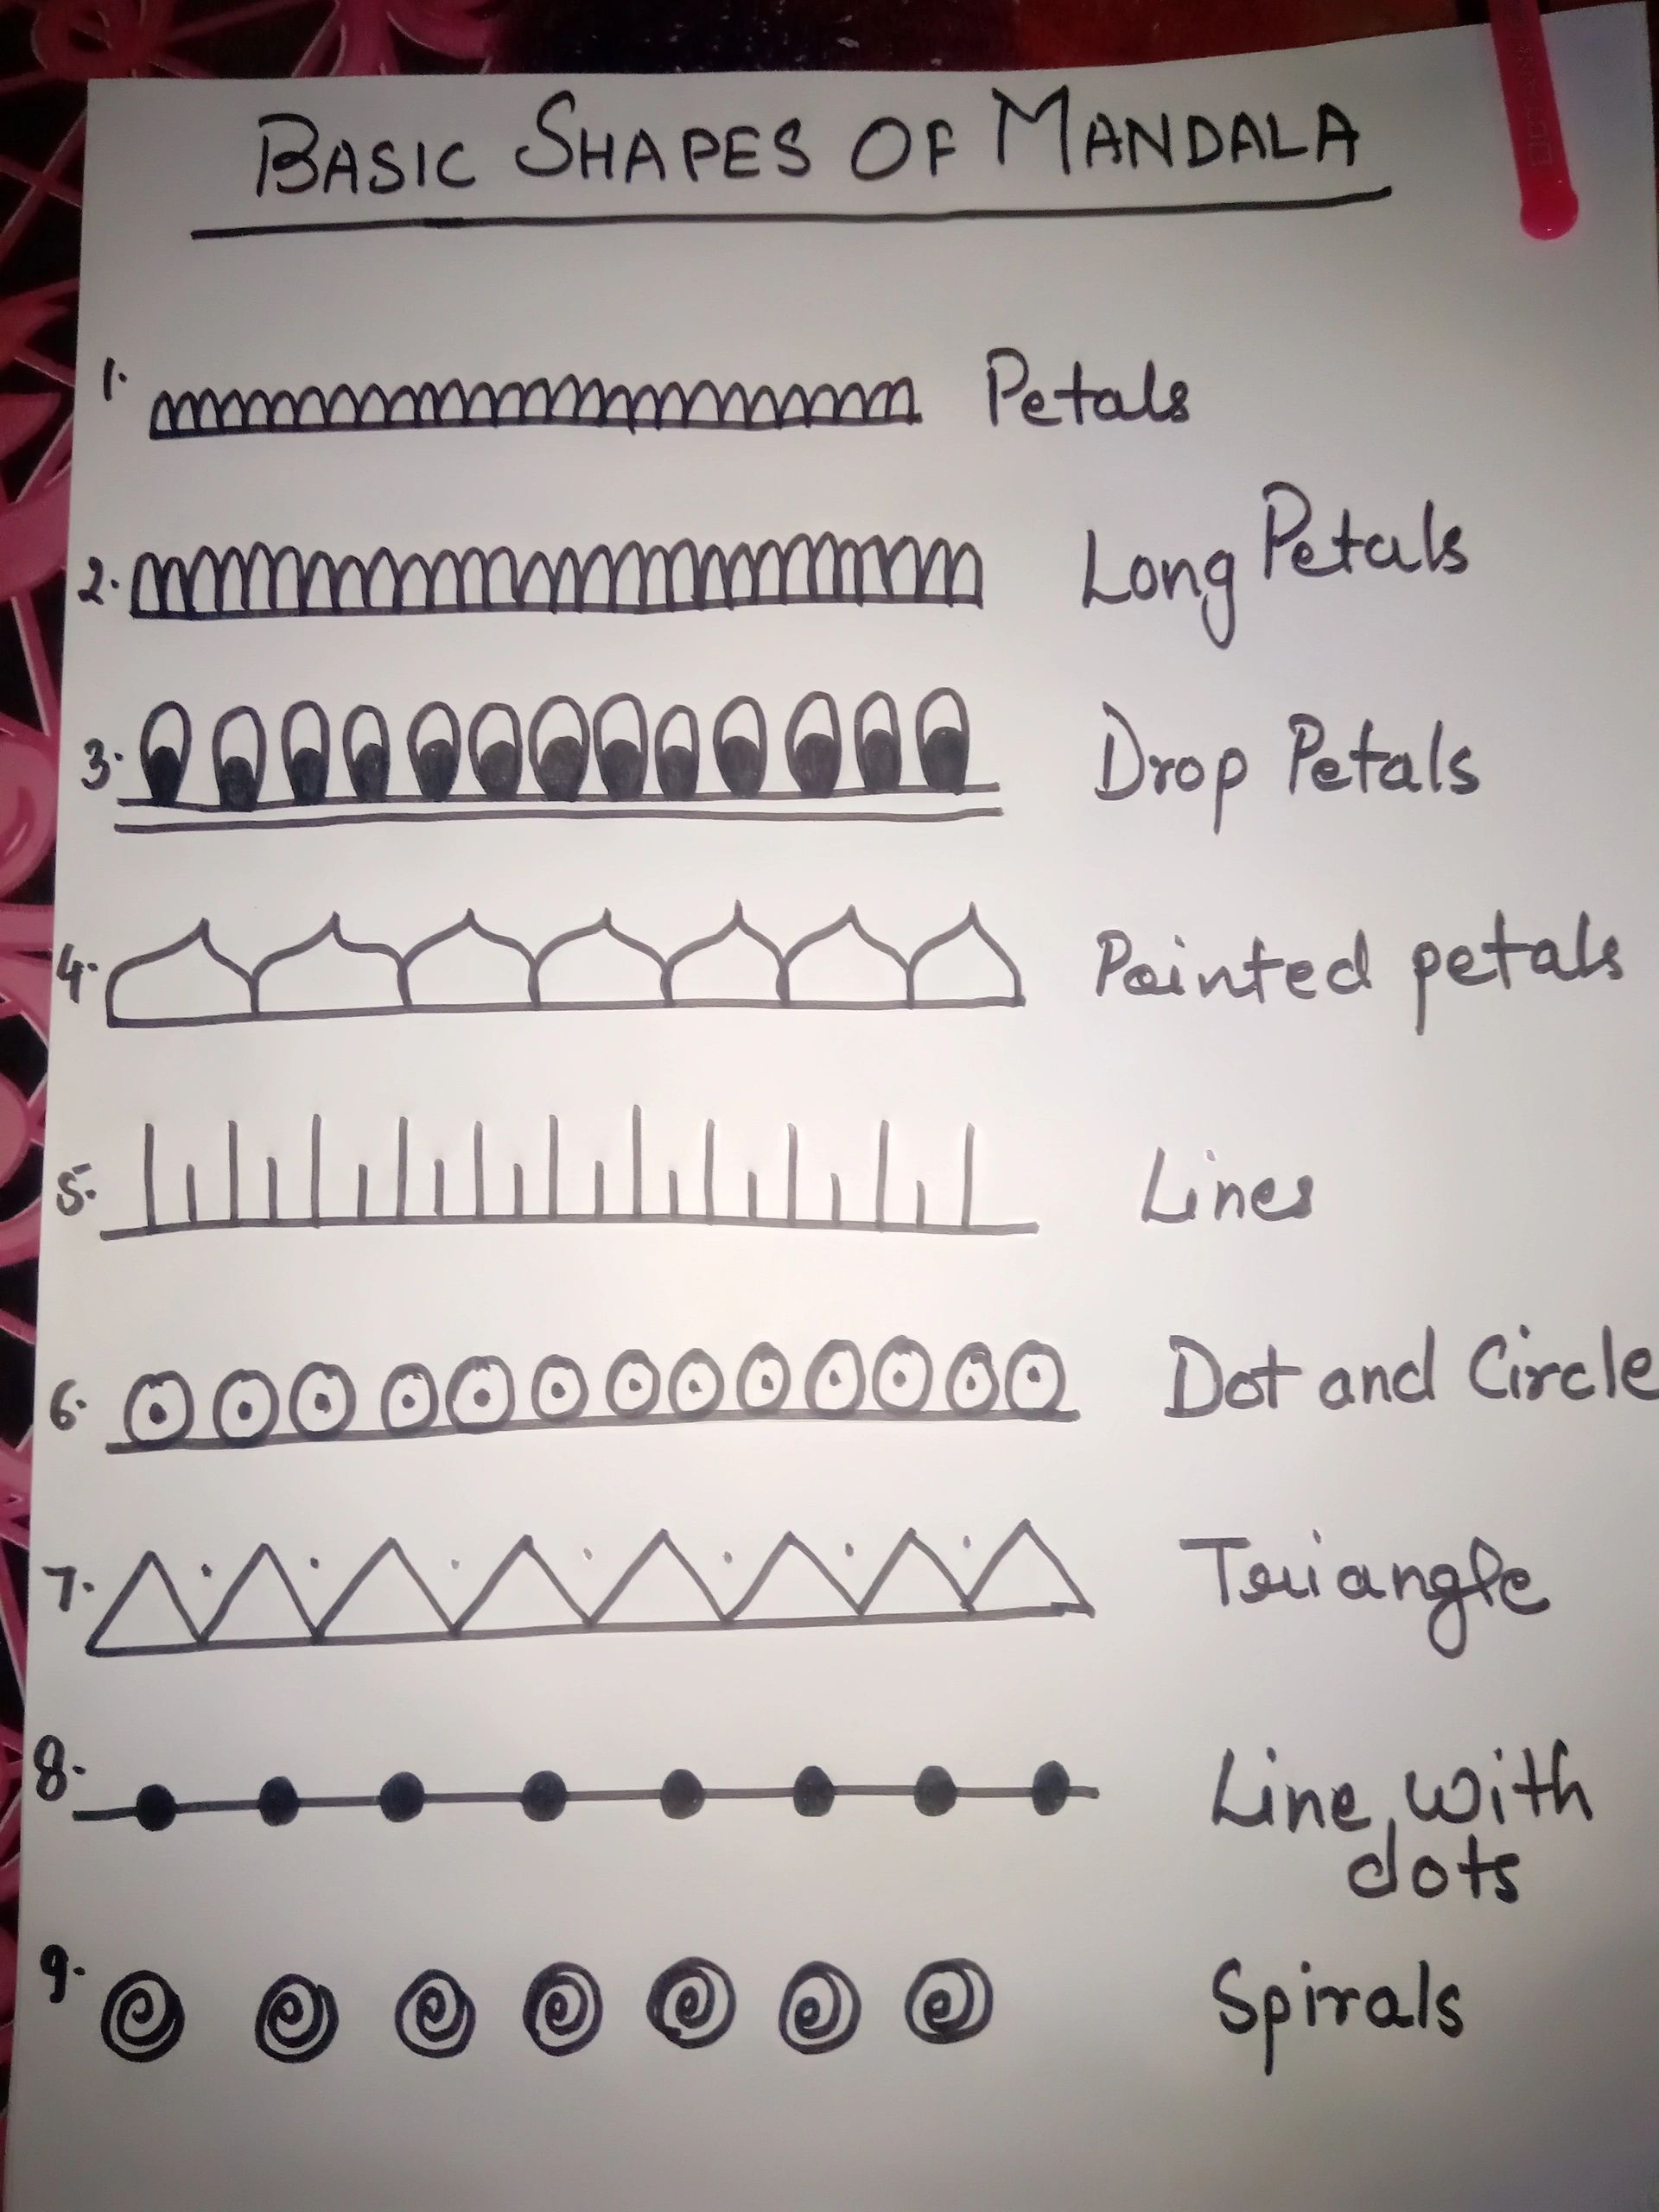 BASIC SHAPES OF MANDALA
1. Petals
2. Long Petals
3. Drop Petals
4. Pointed petals
5. Lines
6. Dot and Circle
7. Triangle
8. Line with
dots
9. Spirals